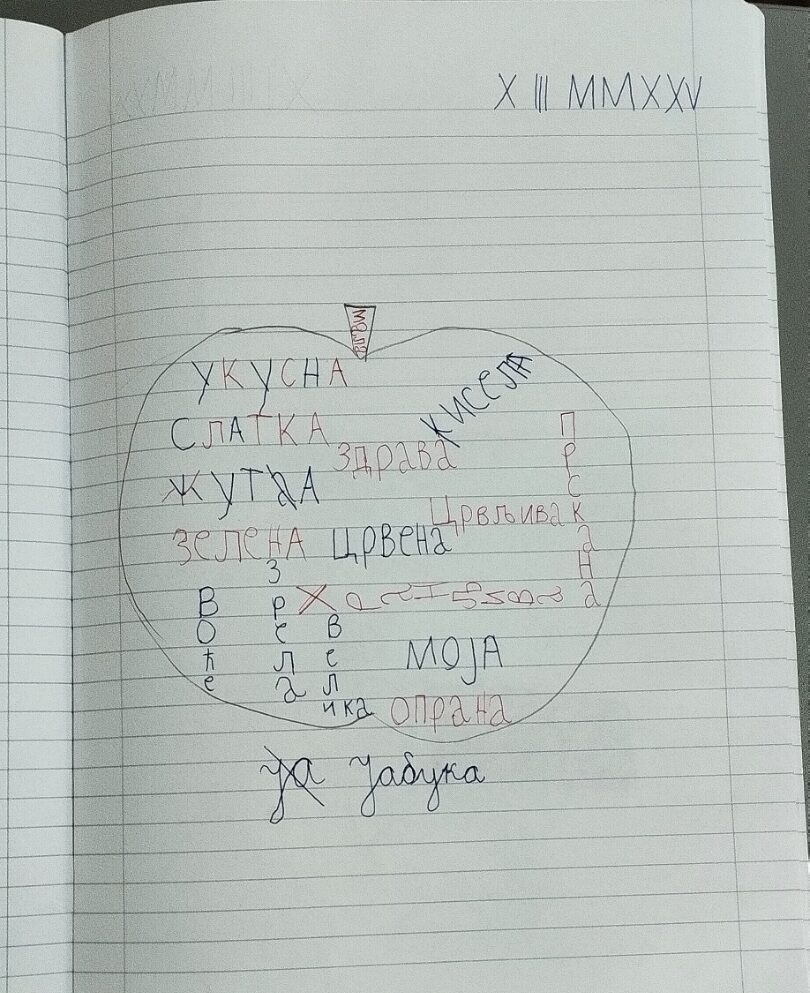 X III MMXXV
УКУСНА
КИСЕЛА
СЛАТКА
ЗДРАВА
ПРСКАНА
ЖУТА
Црвљива
ЗЕЛЕНА ЦРВЕНА
Зрела
Воће
Велика
МОЈА
ОПРАНА
ја Јабука